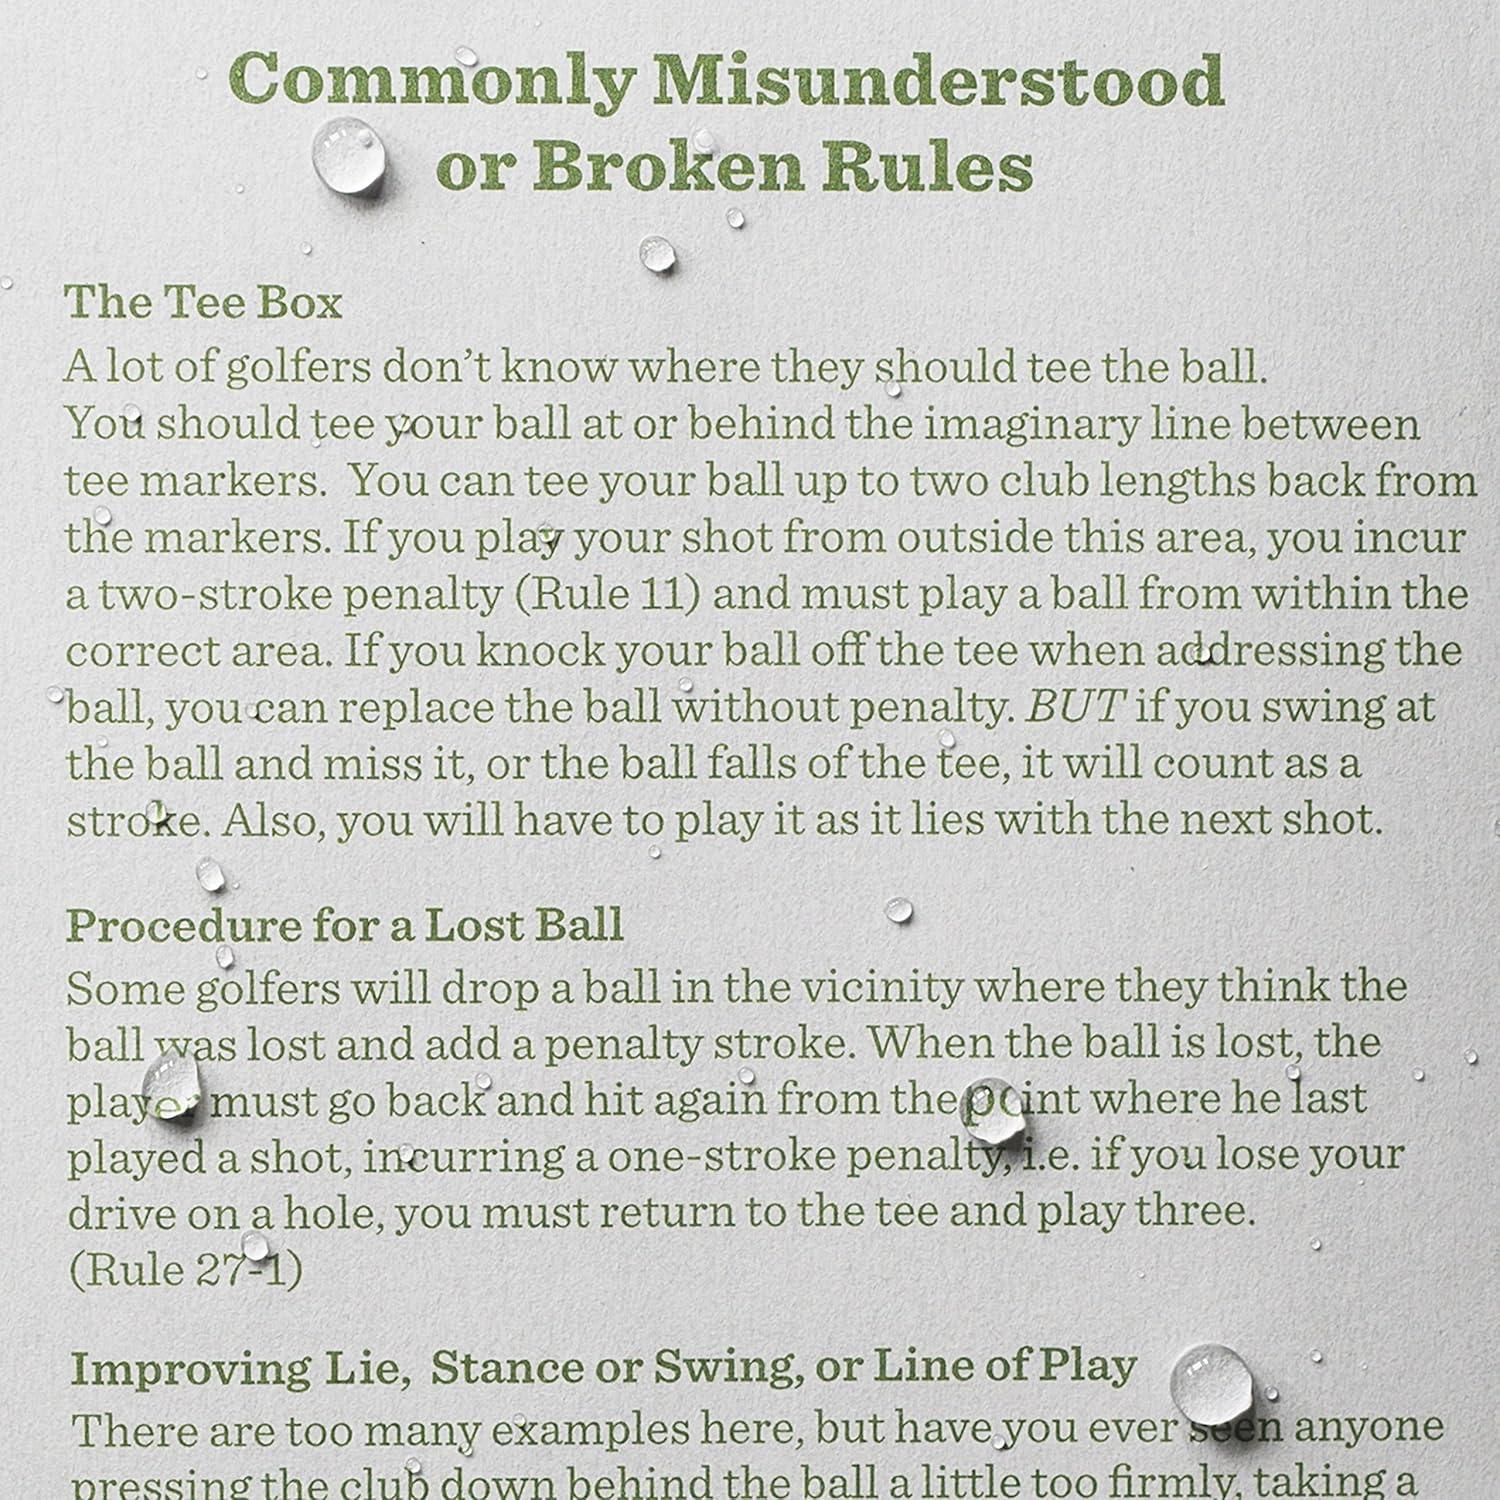 Commonly Misunderstood
or Broken Rules
The Tee Box
A lot of golfers don’t know where they should tee the ball.
You should tee your ball at or behind the imaginary line between
tee markers.  You can tee your ball up to two club lengths back from
the markers. If you play your shot from outside this area, you incur
a two-stroke penalty (Rule 11) and must play a ball from within the
correct area. If you knock your ball off the tee when addressing the
ball, you can replace the ball without penalty. BUT if you swing at
the ball and miss it, or the ball falls of the tee, it will count as a
stroke. Also, you will have to play it as it lies with the next shot.
Procedure for a Lost Ball
Some golfers will drop a ball in the vicinity where they think the
ball was lost and add a penalty stroke. When the ball is lost, the
player must go back and hit again from the point where he last
played a shot, incurring a one-stroke penalty, i.e. if you lose your
drive on a hole, you must return to the tee and play three.
(Rule 27-1)
Improving Lie,  Stance or Swing, or Line of Play
There are too many examples here, but have you ever seen anyone
pressing the club down behind the ball a little too firmly, taking a